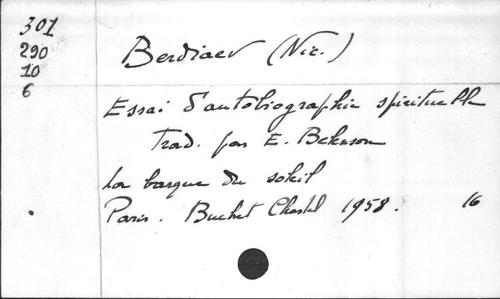 301
290
10
6
Berdiaev (Nic.)
Essai d'autobiographie spirituelle
Trad. par E. Belenson
La barque du soleil
Paris. Buchet Chastel 1958. 16